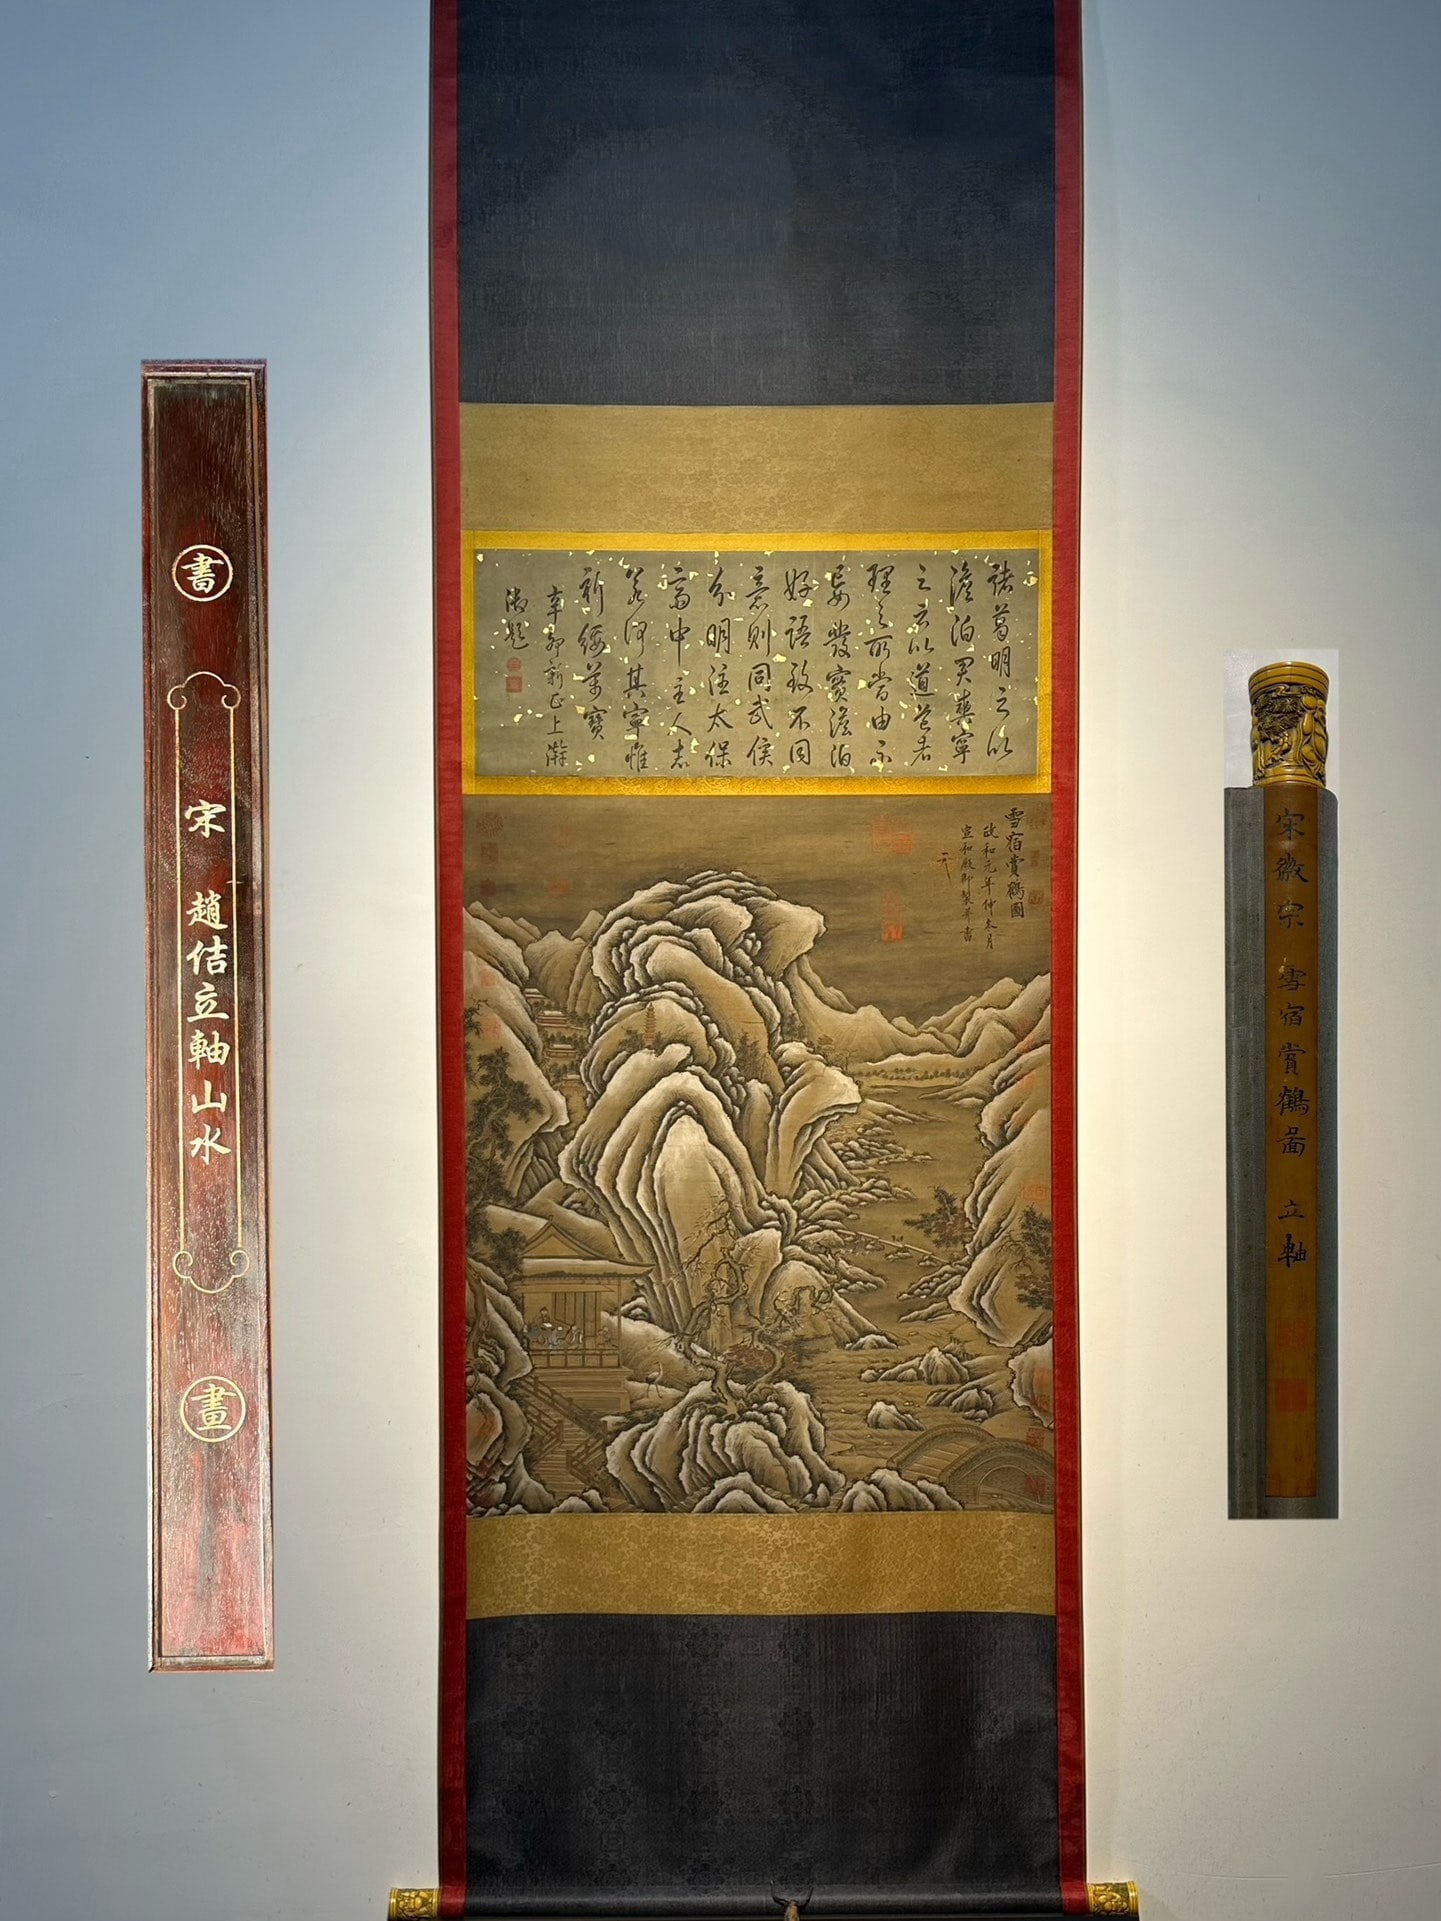 書
宋 趙佶立軸山水
畫
諸葛明之以
澹泊 寧
之云以道道者
理之所當由不
妄發實澹泊
好語致不同
意則同武侯
分明注太保
富中主人志
若何其寧惟
祈綏萬寶
辛卯新正上澣
御題
雪宿賞鶴圖
政和元年仲冬月
宣和殿御製并書
宋徽宗 雪宿賞鶴圖 立軸